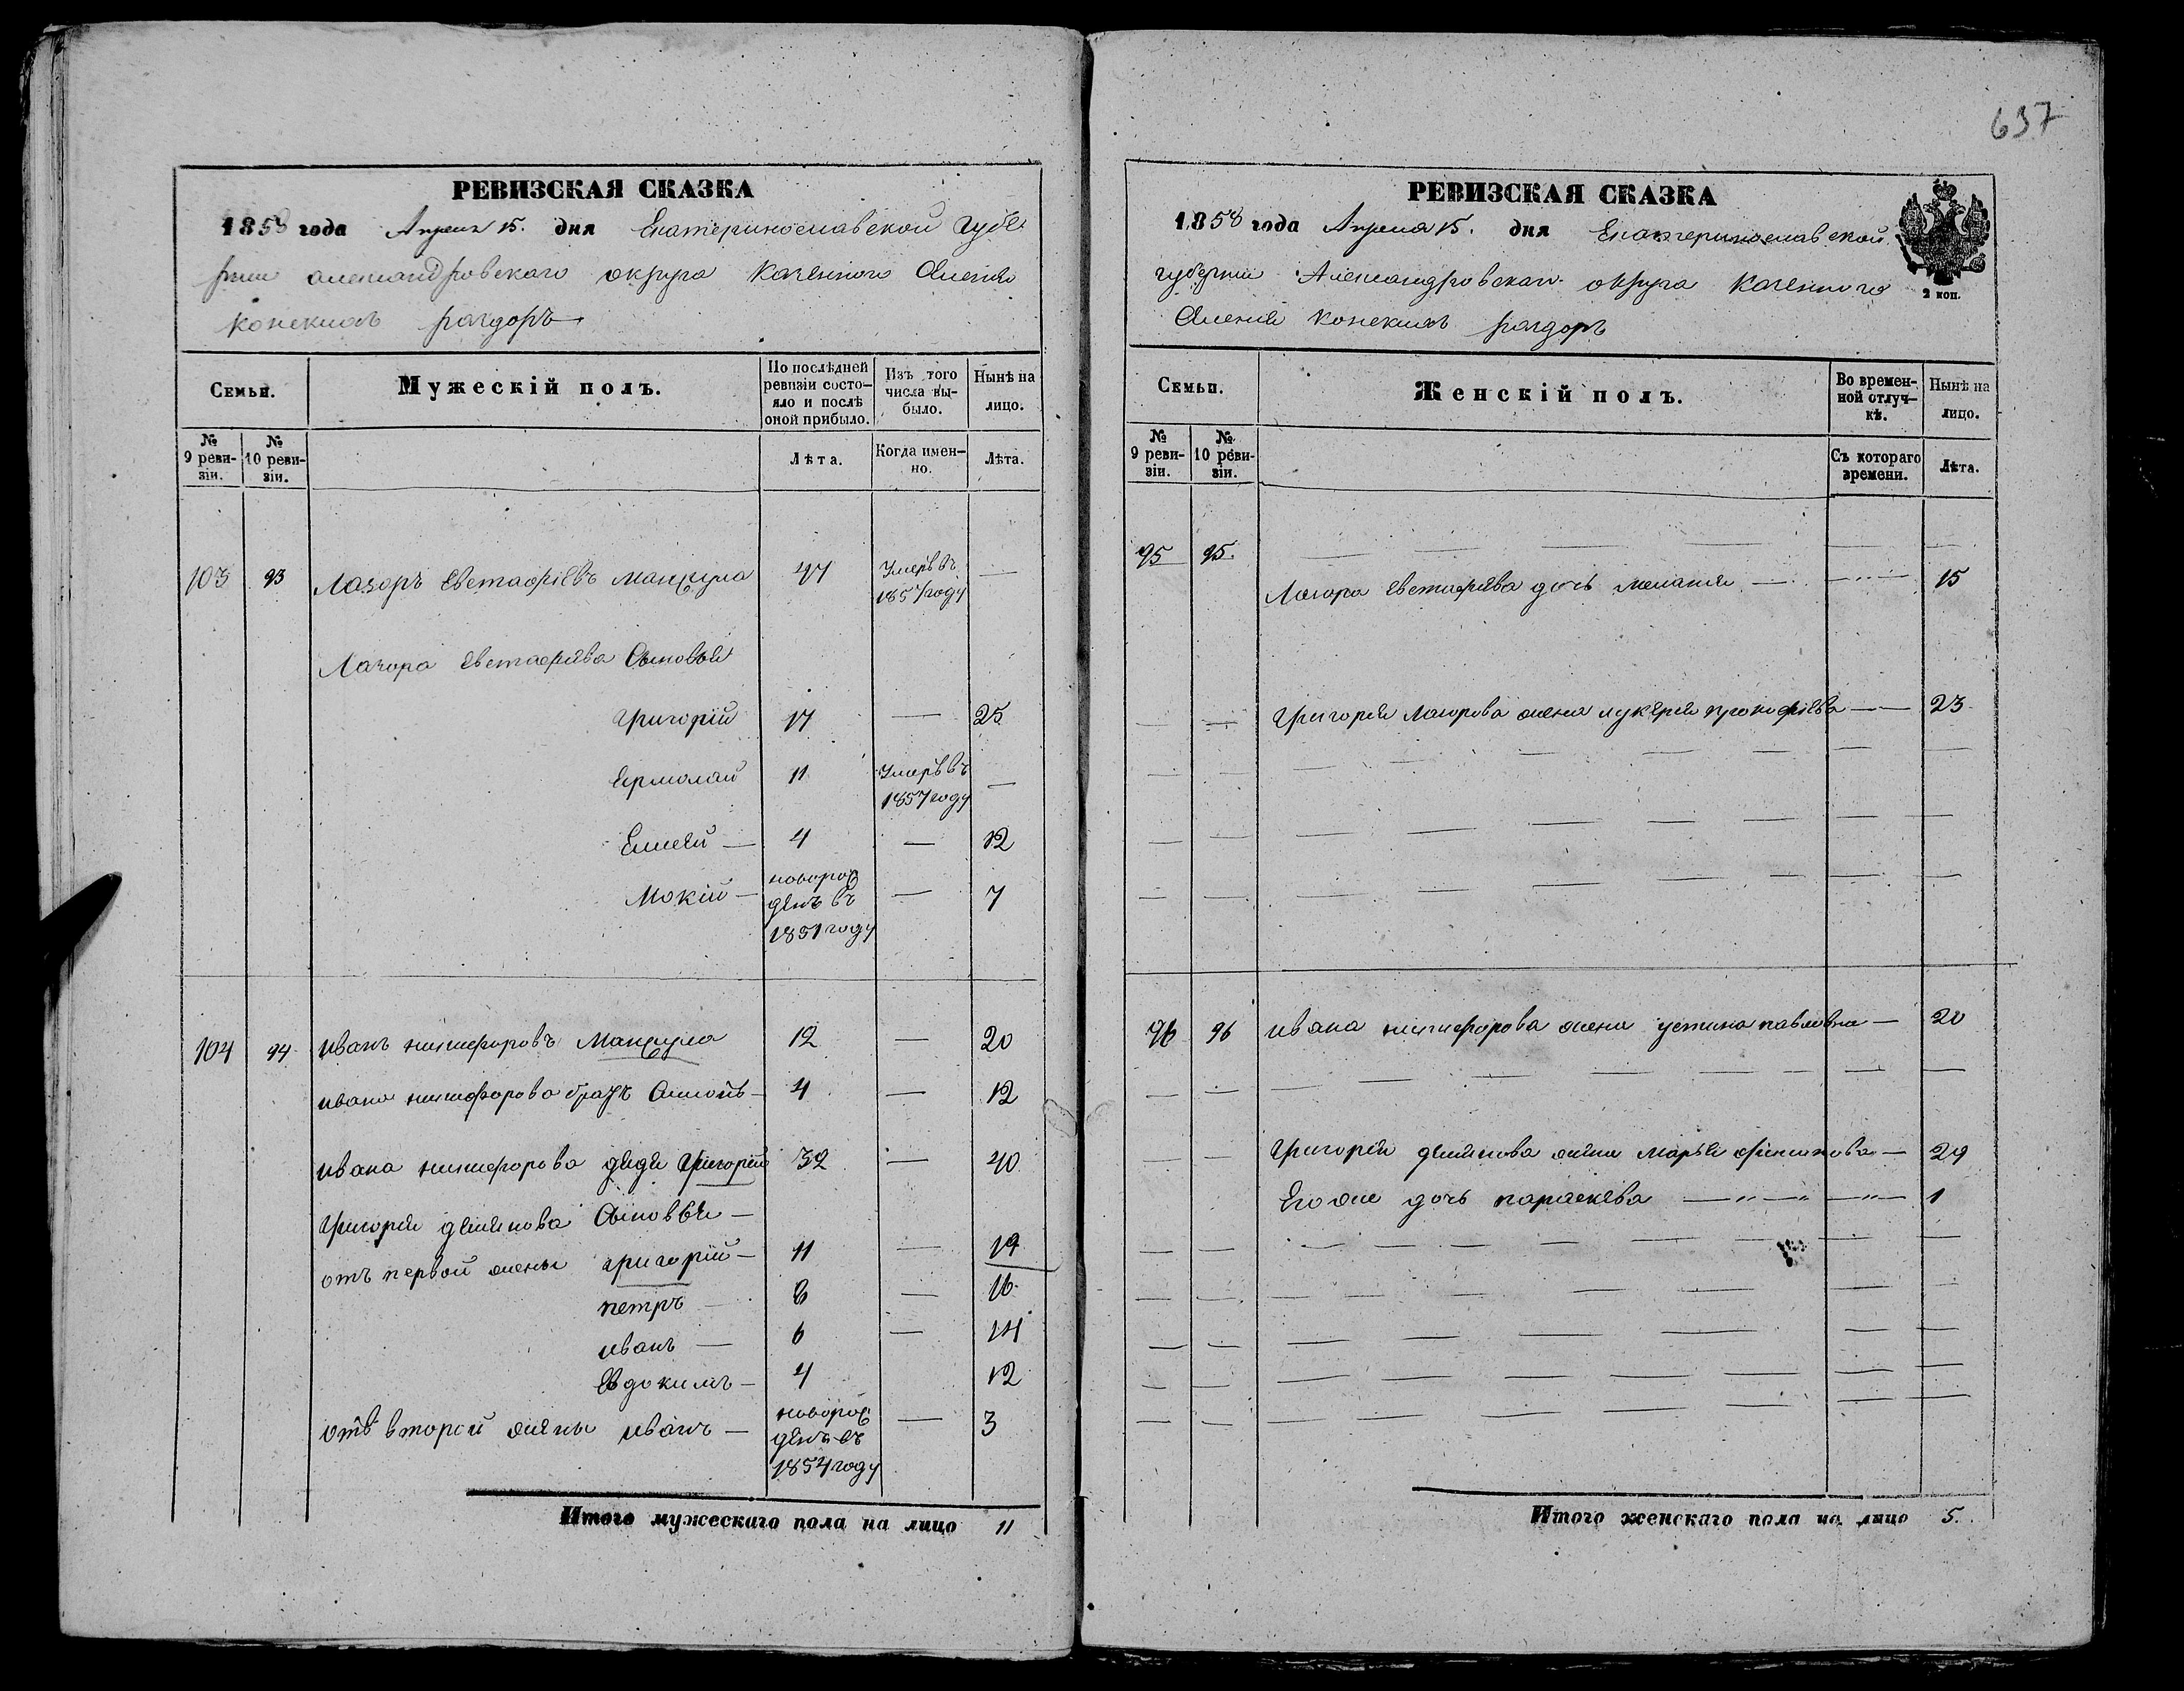 637
РЕВИЗСКАЯ СКАЗКА
1858 года Апреля 15. дня Екатеринославской губе
рнии александровскаго округа Казенного Селенія
конскихъ раздоръ
Семьи.
Мужескій полъ.
По послѣдней ревизіи состояло и послѣ оной прибыло.
Изъ того числа выбыло.
Нынѣ на лицо.
№ 9 ревизіи.
№ 10 ревизіи.
Лѣта.
Когда именно.
Лѣта.
103 93 Лазоръ Евстафіевъ Манцула 47 Умеръ въ 1857 году —
Лазора Евстафіева Сыновья
Григорій 17 — 25
Ермолай 11 Умеръ въ 1857 году —
Елисей — 4 — 12
Мокій — новорожденъ въ 1851 году — 7
104 94 иванъ никифоровъ Манцула 12 — 20
ивана никифорова братъ — 4 — 12
ивана никифорова дядя Григорій 32 — 40
Григорія демянова Сыновья —
отъ первой жены григорій — 11 — 19
петръ — 8 — 16
иванъ — 6 — 14
Евдокимъ — 4 12
отъ второй жены иванъ — новорожденъ въ 1854 году — 3
Итого мужескаго пола на лицо 11
РЕВИЗСКАЯ СКАЗКА
1858 года Апреля 15. дня Екатеринославской
губерніи Александровскаго округа Казенного
Селенія конскихъ раздоръ
2 коп.
Семьи.
Женскій полъ.
Во временной отлучкѣ.
Нынѣ на лицо.
№ 9 ревизіи.
№ 10 ревизіи.
Съ котораго времени.
Лѣта.
95 95.
Лазора Евстафіева дочь мелания — 15
Григорія Лазорова жена лукерия прокофіева — 23
96 96 ивана никифорова жена устина павлова — 20
Григорія демянова жена Марья — 29
Его же дочь параскева — 1
Итого женскаго пола на лицо 5.